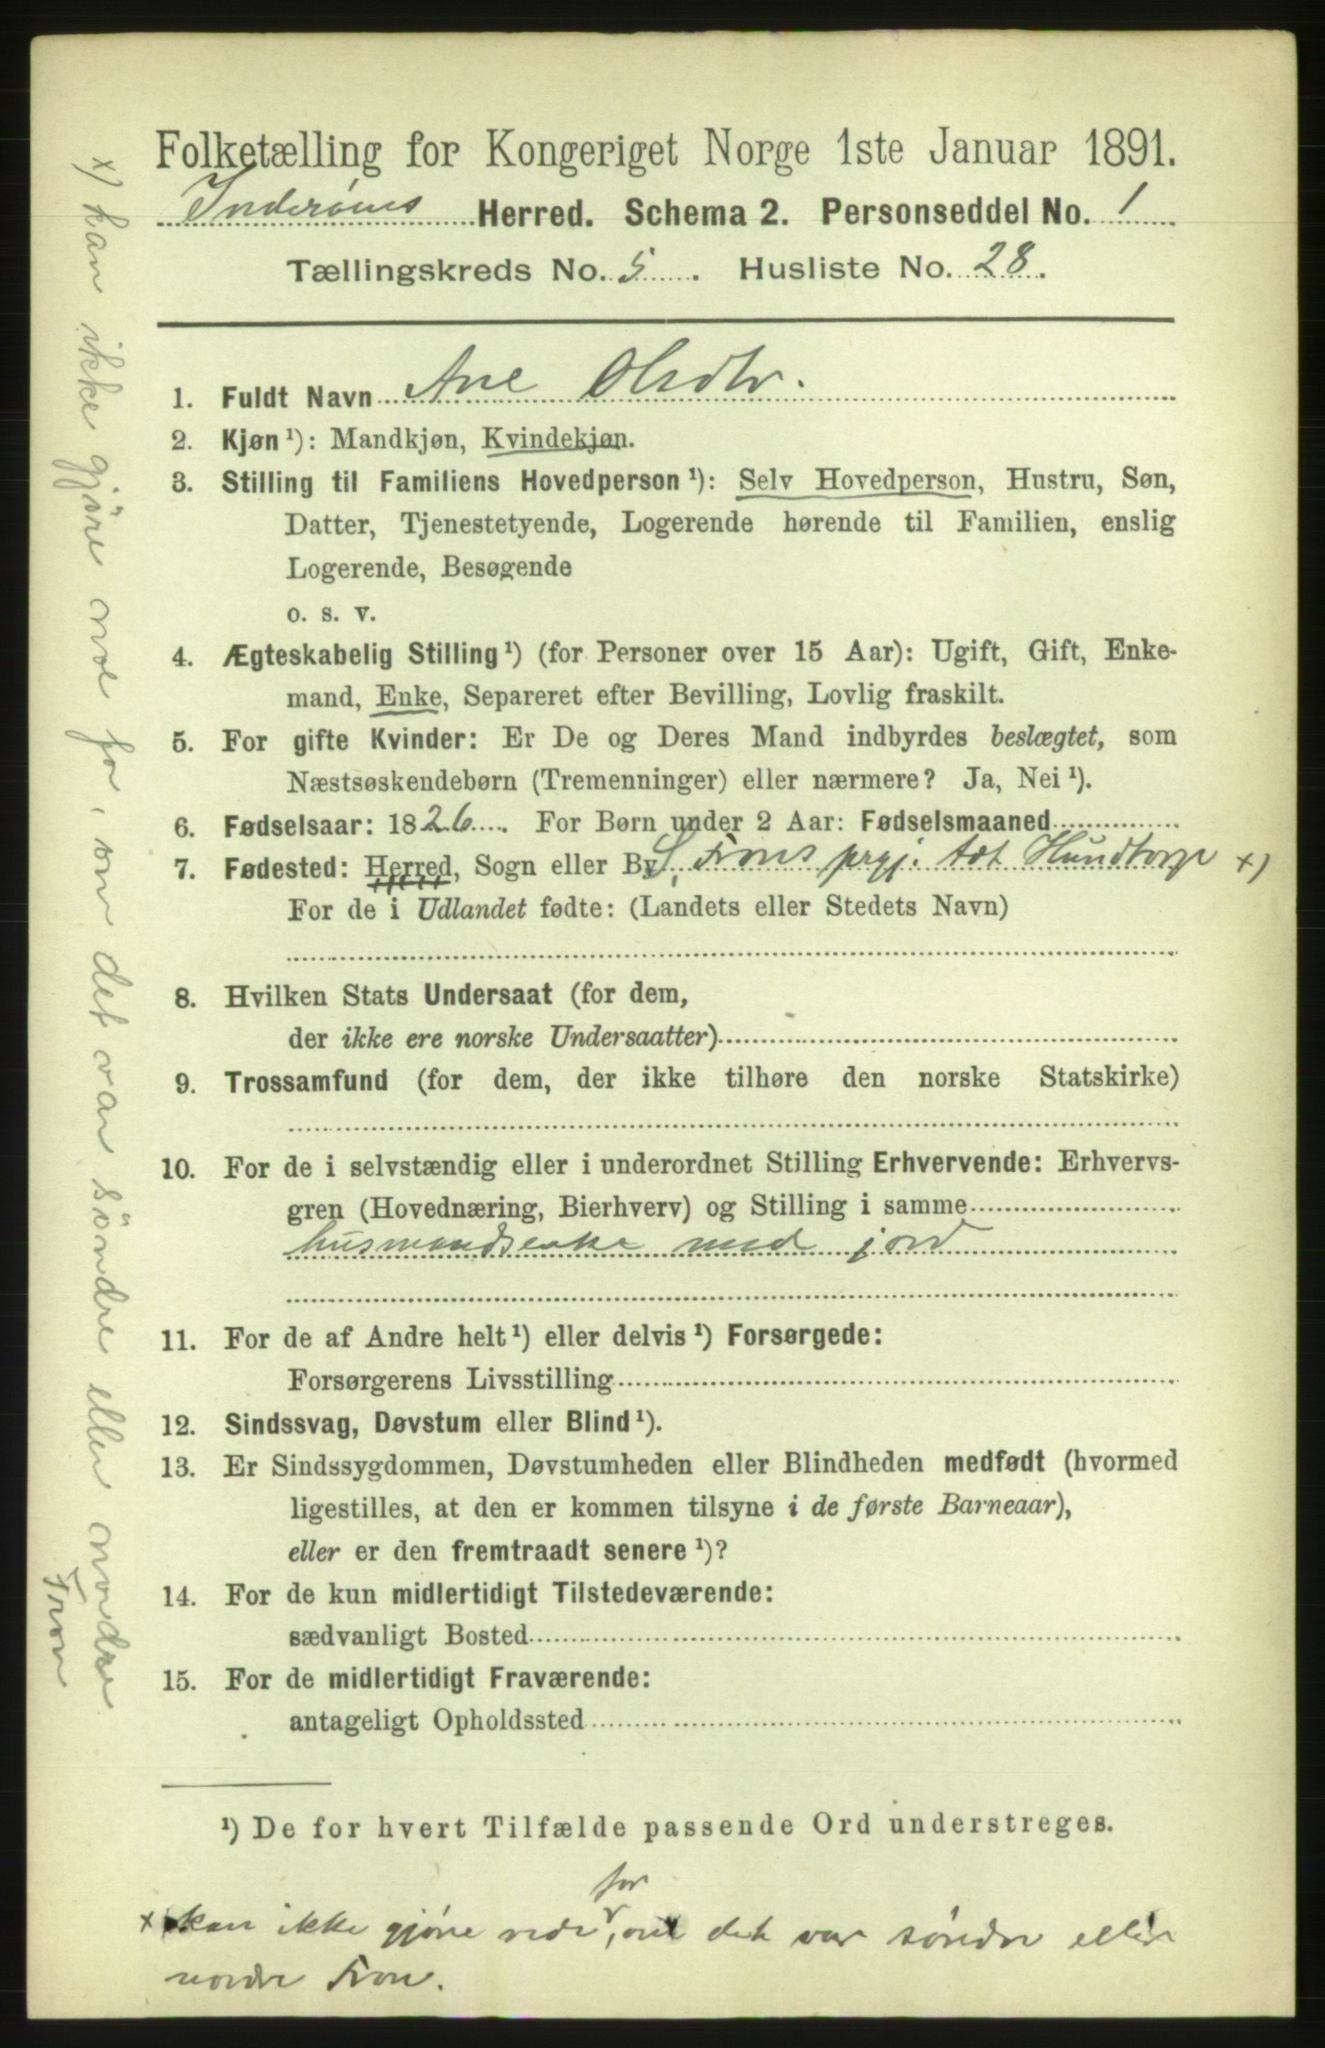 Folketælling for Kongeriget Norge 1ste Januar 1891.
Inderøens Herred. Schema 2. Personseddel No. 1
Tællingskreds No. 5. Husliste No. 28.
1. Fuldt Navn Ane Olsdtr.
2. Kjøn ¹): Mandkjøn, Kvindekjøn.
3. Stilling til Familiens Hovedperson ¹): Selv Hovedperson, Hustru, Søn,
Datter, Tjenestetyende, Logerende hørende til Familien, enslig
Logerende, Besøgende
o. s. v.
4. Ægteskabelig Stilling ¹) (for Personer over 15 Aar): Ugift, Gift, Enke-
mand, Enke, Separeret efter Bevilling, Lovlig fraskilt.
5. For gifte Kvinder: Er De og Deres Mand indbyrdes beslægtet, som
Næstsøskendebørn (Tremenninger) eller nærmere? Ja, Nei ¹).
6. Fødselsaar: 1826. For Børn under 2 Aar: Fødselsmaaned
7. Fødested: Herred, Sogn eller By S. Frons prgj. tæt Hundtorp x)
For de i Udlandet fødte: (Landets eller Stedets Navn)
8. Hvilken Stats Undersaat (for dem,
der ikke ere norske Undersaatter)
9. Trossamfund (for dem, der ikke tilhøre den norske Statskirke)
10. For de i selvstændig eller i underordnet Stilling Erhvervende: Erhvervs-
gren (Hovednæring, Bierhverv) og Stilling i samme
husmandsenke med jord
11. For de af Andre helt ¹) eller delvis ¹) Forsørgede:
Forsørgerens Livsstilling
12. Sindssvag, Døvstum eller Blind ¹).
13. Er Sindssygdommen, Døvstumheden eller Blindheden medfødt (hvormed
ligestilles, at den er kommen tilsyne i de første Barneaar),
eller er den fremtraadt senere ¹)?
14. For de kun midlertidigt Tilstedeværende:
sædvanligt Bosted
15. For de midlertidigt Fraværende:
antageligt Opholdssted
¹) De for hvert Tilfælde passende Ord understreges.
for
x kan ikke gjöre rede, om det var söndre eller
nordre Fron.
x) kan ikke gjöre for, om det var söndre eller nordre
Fron